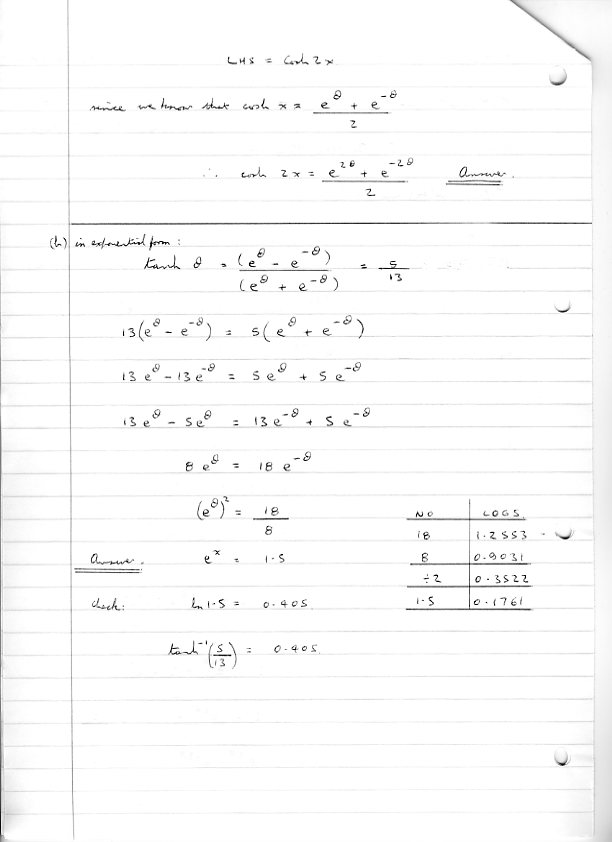 LHS = Cosh 2x
since we know that cosh x = (e^θ + e^-θ) / 2
∴ cosh 2x = (e^2θ + e^-2θ) / 2 Answer.
(b) in exponential form :
tanh θ = (e^θ - e^-θ) / (e^θ + e^-θ) = 5/13
13(e^θ - e^-θ) = 5(e^θ + e^-θ)
13e^θ - 13e^-θ = 5e^θ + 5e^-θ
13e^θ - 5e^θ = 13e^-θ + 5e^-θ
8e^θ = 18e^-θ
(e^θ)^2 = 18/8
Answer. e^x = 1.5
check: ln 1.5 = 0.405
tanh^-1(5/13) = 0.405
NO LOGS
18 1.2553
8 0.9031
÷2 0.3522
1.5 0.1761